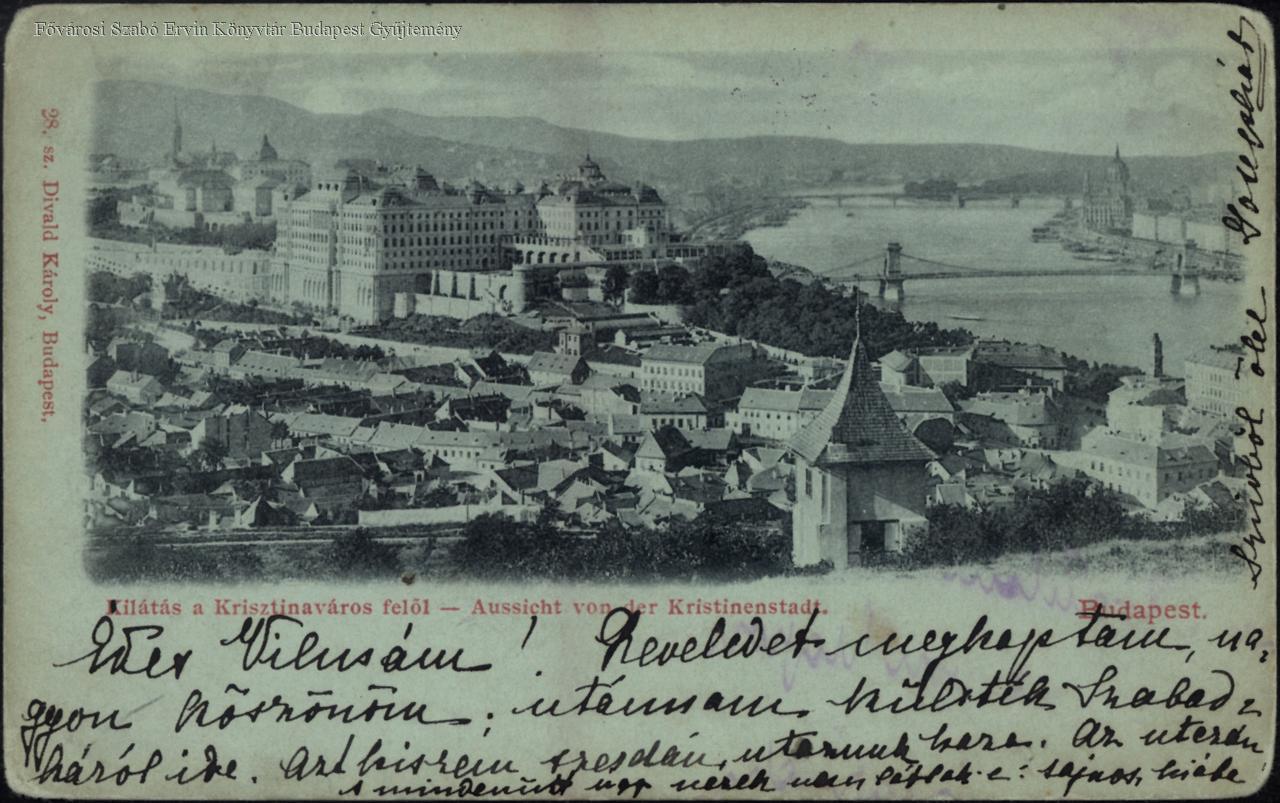 Fővárosi Szabó Ervin Könyvtár Budapest Gyűjtemény
28. sz. Divald Károly, Budapest.
Kilátás a Krisztinaváros felől — Aussicht von der Kristinenstadt.
Budapest.
Édes Vilusám! Leveledet megkaptam, na-
gyon köszönöm; utánnam küldték Szabad-
káról ide. Azt hiszem szerdán utazunk haza. Az utczán
s mindenütt úgy nézek nem látlak-e: sajnos, hiába
Szivből ölel